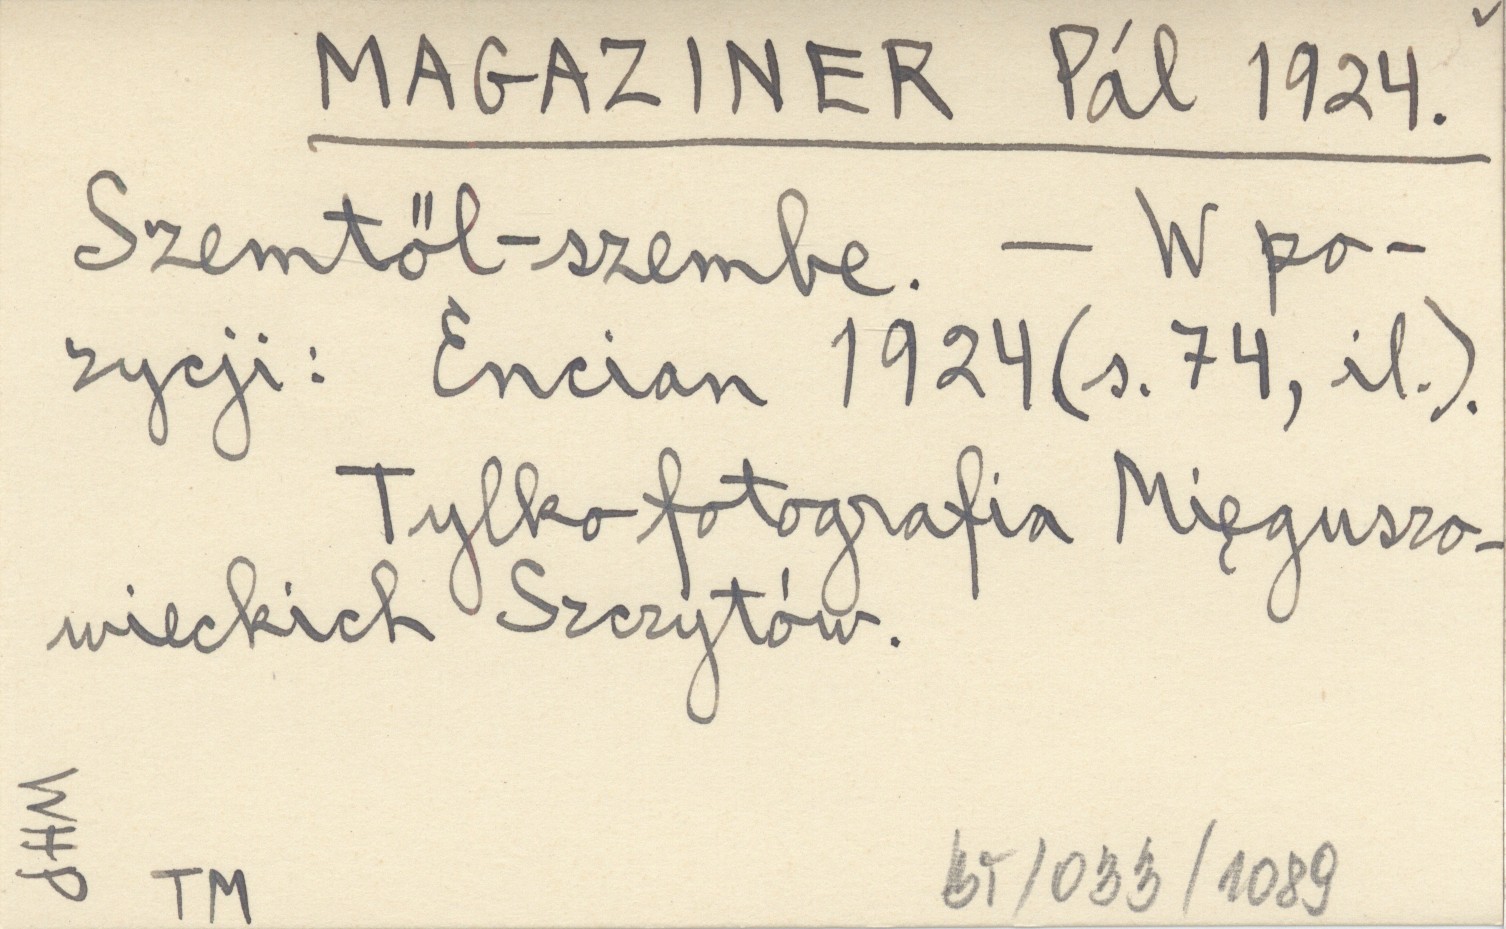 MAGAZINER Pál 1924.
Szemtől-szembe. — W po-
zycji: Encian 1924 (s. 74, il.).
Tylko fotografia Mięguszo-
wieckich Szczytów.
WHP
TM
BT/033/1089